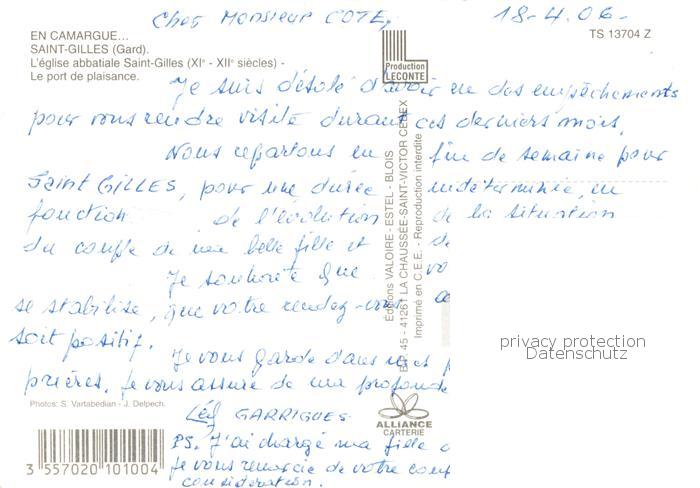 Cher Monsieur COTE, 18-4.06-
EN CAMARGUE...
SAINT-GILLES (Gard).
L'église abbatiale Saint-Gilles (XIe - XIIe siècles) -
Le port de plaisance.
TS 13704 Z
Production
LECONTE
Je suis désolé d'avoir eu des empêchements
pour vous rendre visite durant ces derniers mois.
Nous repartons en fin de semaine pour
Saint GILLES, pour une durée indéterminée, en
fonction de l'évolution de la situation
du couple de ma belle fille et de
Je souhaite que vo
se stabilise, que votre rendez-vous
soit positif.
Je vous garde dans mes p
prières. Je vous assure de ma profonde
GARRIGUES
PS. J'ai chargé ma fille
je vous remercie de votre conf
considération.
Editions VALOIRE - ESTEL - BLOIS
B.P. 45 - 41261 LA CHAUSSÉE-SAINT-VICTOR CEDEX
Imprimé en C.E.E. - Reproduction interdite
privacy protection
Datenschutz
Photos: S. Vartabédian - J. Delpech.
ALLIANCE
CARTERIE
3 557020 101004